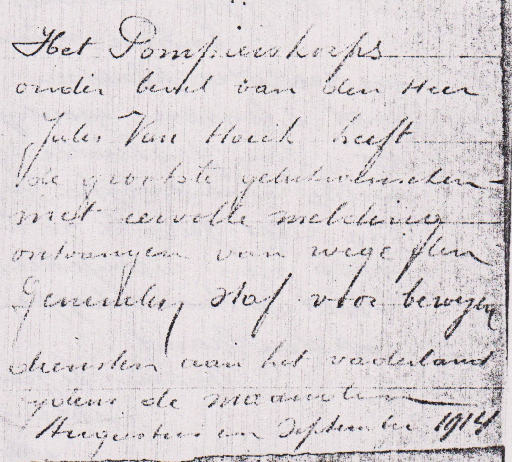 Het Pompierskorps
onder bevel van den Heer
Jules Van Hoeck heeft
de grootste gelukwenschen
met eervolle melding
ontvangen van wege den
Generalen Staf voor bewezen
diensten aan het vaderland
tydens de maanden
Augustus en September 1914